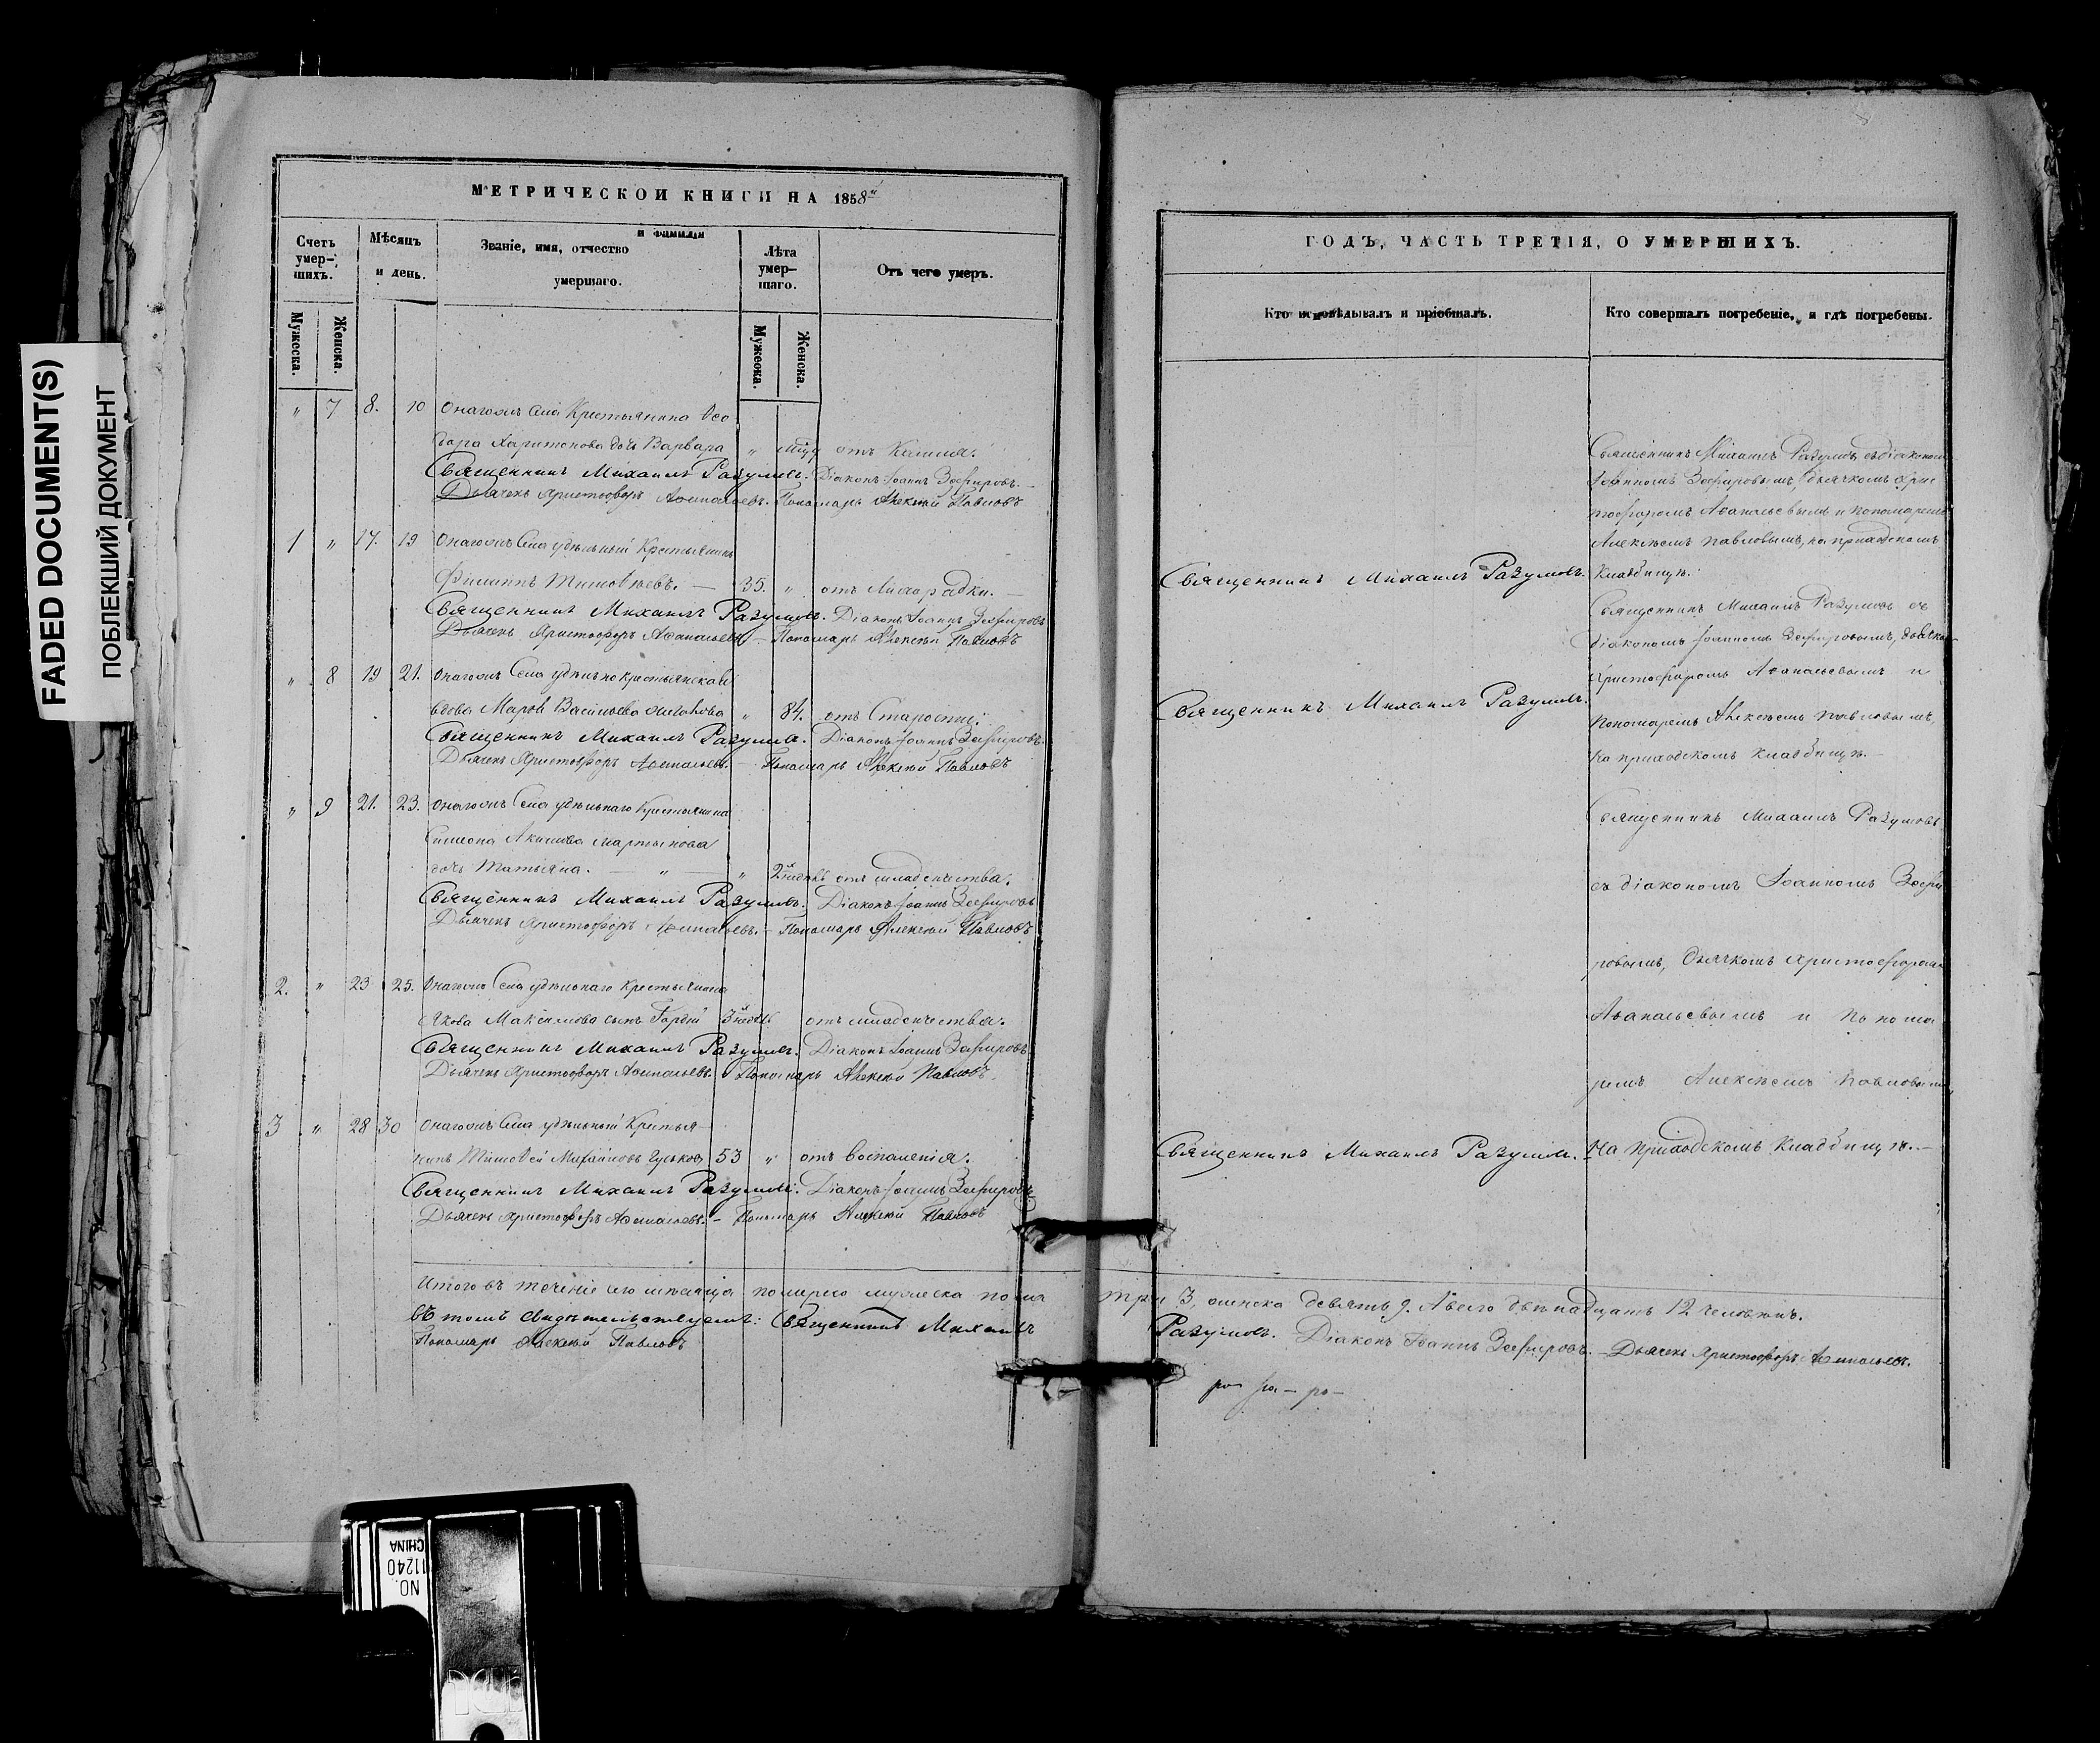 FADED DOCUMENT(S)
ПОБЛЕКШИЙ ДОКУМЕНТ
МЕТРИЧЕСКОЙ КНИГИ НА 1858й
Счетъ умер-шихъ.
Мужеска.
Женска.
Мѣсяцъ и день.
Званіе, имя, отчество и фамилія умершаго.
Лѣта умер-шаго.
Мужеска.
Женска.
Отъ чего умеръ.
" 7 8. 10 Онагожъ Села Крестьянина Ѳео
дора Харитонова дочь Варвара " отъ Кашля.
Священникъ Михаилъ Разумовъ. Діаконъ Іоаннъ Зефировъ.
Дьячекъ Христофоръ Аѳанасьевъ. Пономарь Алексѣй Павловъ
1 " 17. 19 Онагожъ Села удѣльный Крестьянинъ
Филиппъ Тимоѳѣевъ. — 35. " отъ Лихорадки. —
Священникъ Михаилъ Разумовъ. Діаконъ Іоаннъ Зефировъ
Дьячекъ Христофоръ Аѳанасьевъ. — Пономарь Алексѣй Павловъ
" 8 19 21. Онагожъ Села удѣльно крестьянская
вдова Марѳа Васильева " 84. отъ Старости.
Священникъ Михаилъ Разумовъ. Діаконъ Іоаннъ Зефировъ.
Дьячекъ Христофоръ Аѳанасьевъ. — Пономарь Алексѣй Павловъ
" 9 21. 23. Онагожъ Села удѣльнаго Крестьянина
Симеона Акимова Мартынова
дочь Татьяна. — " — " 2хъ недѣль отъ младенчества.
Священникъ Михаилъ Разумовъ. Діаконъ Іоаннъ Зефировъ
Дьячекъ Христофоръ Аѳанасьевъ. — Пономарь Алексѣй Павловъ
2. " 23 25. Онагожъ Села удѣльнаго Крестьянина
Якова Максимова сынъ Гордій 3 недѣль отъ младенчества.
Священникъ Михаилъ Разумовъ. Діаконъ Іоаннъ Зефировъ
Дьячекъ Христофоръ Аѳанасьевъ. Пономарь Алексѣй Павловъ.
3 " 28 30 Онагожъ Села удѣльный Крестья-
нинъ Тимоѳей Михайловъ Гуськовъ 53 " отъ воспаленія.
Священникъ Михаилъ Разумовъ. Діаконъ Іоаннъ Зефировъ
Дьячекъ Христофоръ Аѳанасьевъ. — Пономарь Алексѣй Павловъ
Итого въ теченіе сего мѣсяца померло мужеска пола
въ томъ свидѣтельствуемъ: Священникъ Михаилъ
Пономарь Алексѣй Павловъ
ГОДЪ, ЧАСТЬ ТРЕТІЯ, О УМЕРШИХЪ.
Кто исповѣдывалъ и пріобщалъ.
Кто совершалъ погребеніе, и гдѣ погребены.
Священникъ Михаилъ Разумовъ съ діакономъ
Іоанномъ Зефировымъ, дьячкомъ Хрис
тофоромъ Аѳанасьевымъ и пономаремъ
Алексѣемъ Павловымъ, на приходскомъ
Священникъ Михаилъ Разумовъ. кладбищѣ.
Священникъ Михаилъ Разумовъ съ
діакономъ Іоанномъ Зефировымъ, дьячком
Христофоромъ Аѳанасьевымъ и
Священникъ Михаилъ Разумовъ. Пономаремъ Алексѣемъ Павловымъ,
на приходскомъ кладбищѣ. —
Священникъ Михаилъ Разумовъ
съ діакономъ Іоанномъ Зефи
ровымъ, дьячкомъ Христофоромъ
Аѳанасьевымъ и понома
ремъ Алексѣемъ Павловымъ
Священникъ Михаилъ Разумовъ. На приходскомъ кладбищѣ. —
три 3, женска девять 9. А всего двѣнадцать 12 человѣкъ.
Разумовъ. Діаконъ Іоаннъ Зефировъ. — Дьячекъ Христофоръ Аѳанасьевъ.
NO. 11240
CHINA